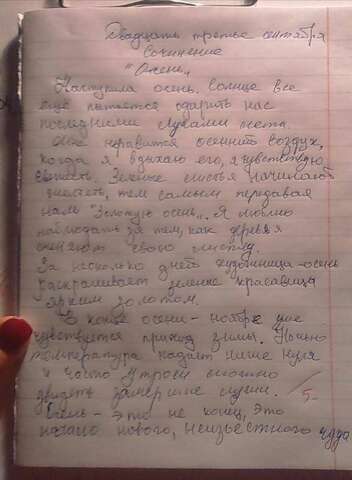 Двадцать третье сентября
Сочинение
"Осень"
Наступила осень. Солнце все
еще пытается одарить нас
последними лучами лета.
Мне нравится осенний воздух,
когда я вдыхаю его, я чувствую
свежесть. Зеленые листья начинают
желтеть, тем самым передавая
нам "Золотую осень". Я люблю
наблюдать за тем, как деревья
скидают свою листву.
За несколько дней художница-осень
раскрашивает зеленые красавицы
ярким золотом.
В конце осени - ноябре уже
чувствуется приход зимы. Ночью
температура падает ниже нуля
и часто утром можно
увидеть замерзшие лужи.
5-
Осень - это не конец, это
начало нового, неизвестного чуда